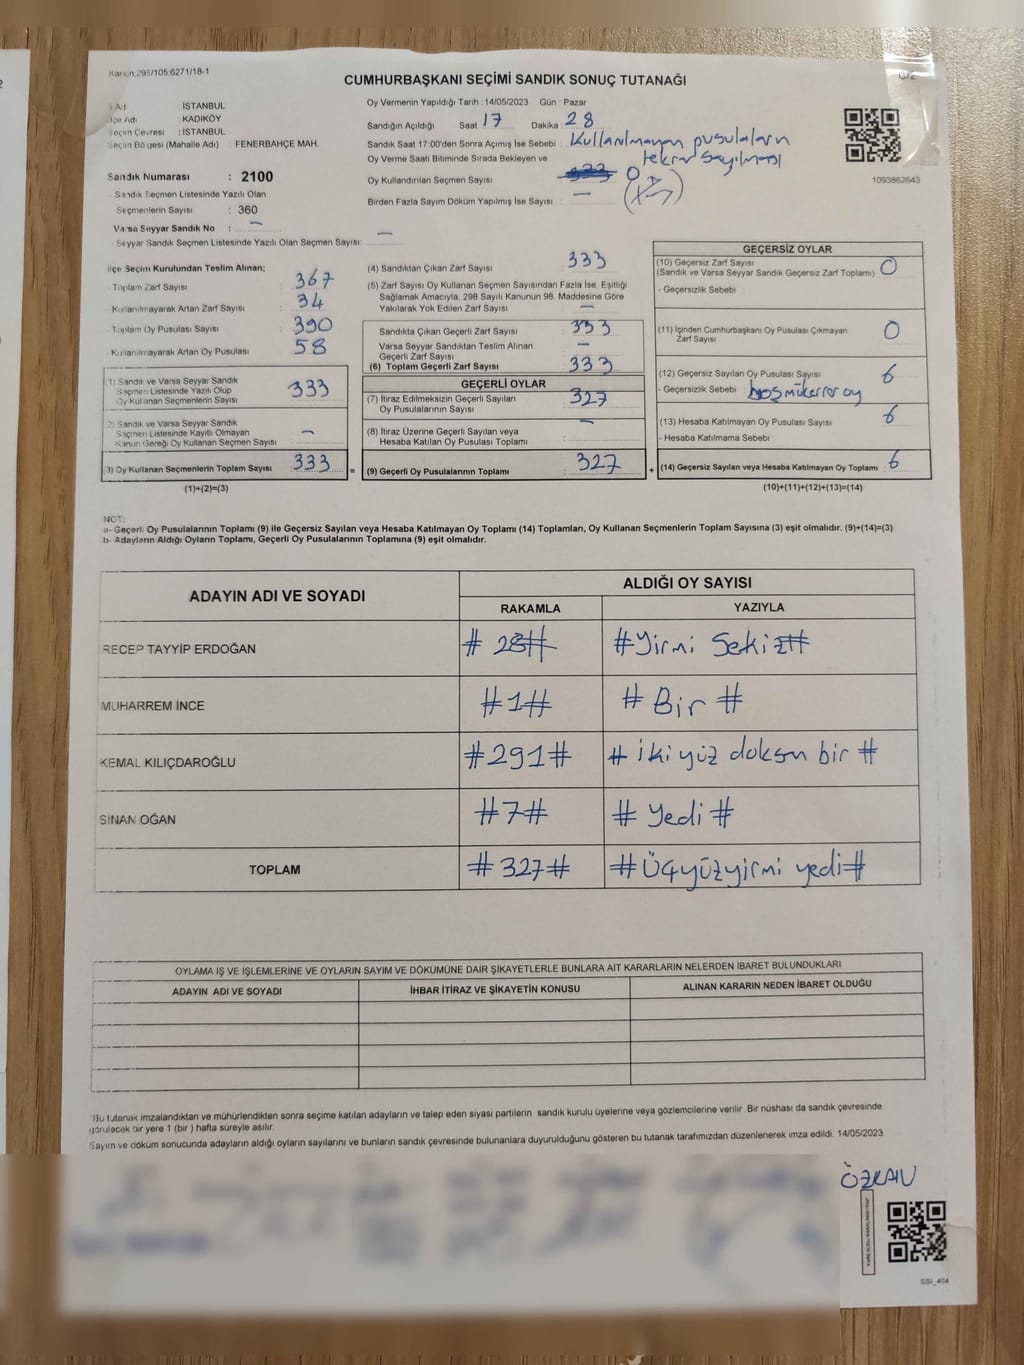 Kanun:298/105;6271/18-1
CUMHURBAŞKANI SEÇİMİ SANDIK SONUÇ TUTANAĞI
İl Adı : İSTANBUL
İlçe Adı : KADIKÖY
Seçim Çevresi : İSTANBUL
Seçim Bölgesi (Mahalle Adı) : FENERBAHÇE MAH.
Sandık Numarası : 2100
- Sandık Seçmen Listesinde Yazılı Olan
Seçmenlerin Sayısı : 360
Varsa Seyyar Sandık No : -
- Seyyar Sandık Seçmen Listesinde Yazılı Olan Seçmen Sayısı: -
Oy Vermenin Yapıldığı Tarih : 14/05/2023 Gün : Pazar
Sandığın Açıldığı Saat 17 Dakika 28
Sandık Saat 17:00'den Sonra Açımış İse Sebebi : Kullanılmayan pusulaların
tekrar sayılması
Oy Verme Saati Bitiminde Sırada Bekleyen ve
Oy Kullandırılan Seçmen Sayısı 333 0
Birden Fazla Sayım Döküm Yapılmış İse Sayısı : -
1093862643
İlçe Seçim Kurulundan Teslim Alınan;
- Toplam Zarf Sayısı : 367
- Kullanılmayarak Artan Zarf Sayısı : 34
- Toplam Oy Pusulası Sayısı : 390
- Kullanılmayarak Artan Oy Pusulası : 58
(1) Sandık ve Varsa Seyyar Sandık
Seçmen Listesinde Yazılı Olup
Oy Kullanan Seçmenlerin Sayısı : 333
(2) Sandık ve Varsa Seyyar Sandık
Seçmen Listesinde Kayıtlı Olmayan
Kanun Gereği Oy Kullanan Seçmen Sayısı : -
(3) Oy Kullanan Seçmenlerin Toplam Sayısı : 333 =
(1)+(2)=(3)
(4) Sandıktan Çıkan Zarf Sayısı : 333
(5) Zarf Sayısı Oy Kullanan Seçmen Sayısından Fazla İse, Eşitliği
Sağlamak Amacıyla, 298 Sayılı Kanunun 98. Maddesine Göre
Yakılarak Yok Edilen Zarf Sayısı : -
Sandıkta Çıkan Geçerli Zarf Sayısı : 333
Varsa Seyyar Sandıktan Teslim Alınan
Geçerli Zarf Sayısı : -
(6) Toplam Geçerli Zarf Sayısı : 333
GEÇERLİ OYLAR
(7) İtiraz Edilmeksizin Geçerli Sayılan
Oy Pusulalarının Sayısı : 327
(8) İtiraz Üzerine Geçerli Sayılan veya
Hesaba Katılan Oy Pusulası Toplamı : -
(9) Geçerli Oy Pusulalarının Toplamı : 327 +
GEÇERSİZ OYLAR
(10) Geçersiz Zarf Sayısı
(Sandık ve Varsa Seyyar Sandık Geçersiz Zarf Toplamı) : 0
- Geçersizlik Sebebi :
(11) İçinden Cumhurbaşkanı Oy Pusulası Çıkmayan
Zarf Sayısı : 0
(12) Geçersiz Sayılan Oy Pusulası Sayısı : 6
- Geçersizlik Sebebi : boş mükerrer oy
(13) Hesaba Katılmayan Oy Pusulası Sayısı : 6
- Hesaba Katılmama Sebebi :
(14) Geçersiz Sayılan veya Hesaba Katılmayan Oy Toplamı : 6
(10)+(11)+(12)+(13)=(14)
NOT:
a- Geçerli Oy Pusulalarının Toplamı (9) ile Geçersiz Sayılan veya Hesaba Katılmayan Oy Toplamı (14) Toplamları, Oy Kullanan Seçmenlerin Toplam Sayısına (3) eşit olmalıdır. (9)+(14)=(3)
b- Adayların Aldığı Oyların Toplamı, Geçerli Oy Pusulalarının Toplamına (9) eşit olmalıdır.
ADAYIN ADI VE SOYADI ALDIĞI OY SAYISI
RAKAMLA YAZIYLA
RECEP TAYYİP ERDOĞAN #28# #Yirmi Sekiz#
MUHARREM İNCE #1# #Bir#
KEMAL KILIÇDAROĞLU #291# #iki yüz doksn bir#
SİNAN OĞAN #7# #Yedi#
TOPLAM #327# #Üçyüzyirmi yedi#
OYLAMA İŞ VE İŞLEMLERİNE VE OYLARIN SAYIM VE DÖKÜMÜNE DAİR ŞİKAYETLERLE BUNLARA AİT KARARLARIN NELERDEN İBARET BULUNDUKLARI
ADAYIN ADI VE SOYADI İHBAR İTİRAZ VE ŞİKAYETİN KONUSU ALINAN KARARIN NEDEN İBARET OLDUĞU
*Bu tutanak imzalandıktan ve mühürlendikten sonra seçime katılan adayların ve talep eden siyasi partilerin sandık kurulu üyelerine veya gözlemcilerine verilir. Bir nüshası da sandık çevresinde
görülecek bir yere 1 (bir ) hafta süreyle asılır.
Sayım ve döküm sonucunda adayların aldığı oyların sayılarını ve bunların sandık çevresinde bulunanlara duyurulduğunu gösteren bu tutanak tarafımızdan düzenlenerek imza edildi. 14/05/2023
ÖZKAN
SSI_404